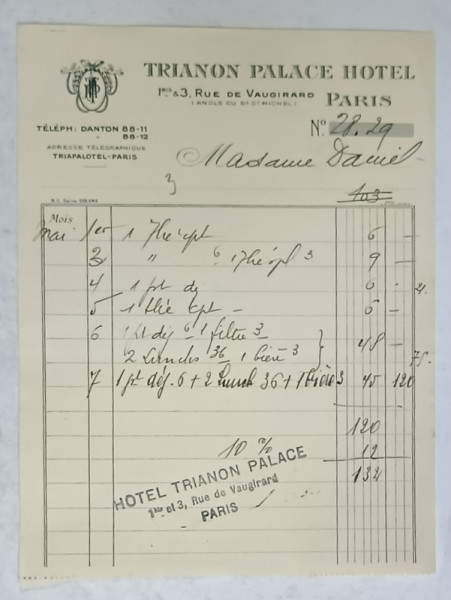 TRIANON PALACE HOTEL
1BIS & 3, RUE DE VAUGIRARD
(ANGLE DU BD ST MICHEL)
PARIS
TÉLÉPH: DANTON 88-11
" 88-12
ADRESSE TÉLÉGRAPHIQUE
TRIAPALOTEL-PARIS
No 28.29
Madame Daniel
3
103
Mois
mai 1er 1 Thé cpt 6 —
2 " 6 1 Thé spl 3 9 —
4 1 pt dj 6 - 21.
5 1 thé cpt — 6 —
6 1 pt déj 6 1 filtre 3
2 Lunchs 36 1 bière 3 } 48 — 75.
7 1 pt déj. 6 + 2 Lunch 36 + 1 Bière 3 45 120
120
10 % 12
132
HOTEL TRIANON PALACE
1BIS et 3, Rue de Vaugirard
PARIS